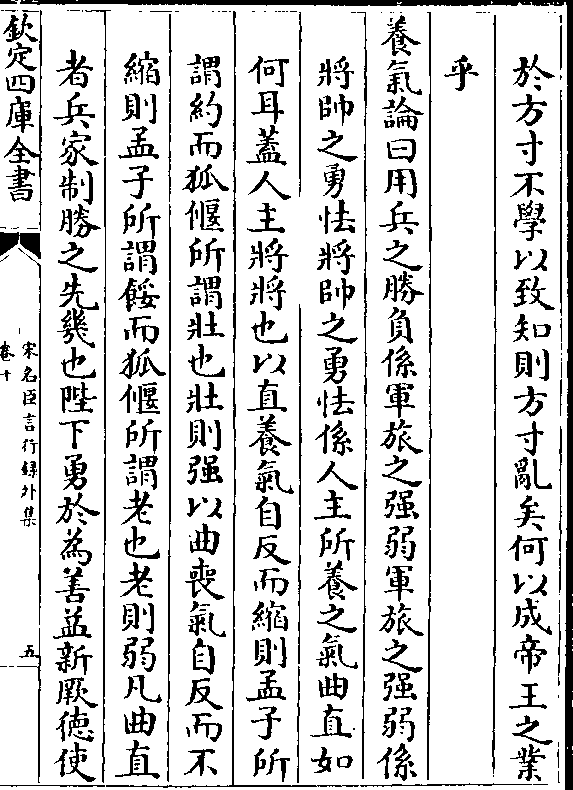 於方寸不學以致知則方寸亂矣何以成帝王之業
乎
養氣論曰用兵之勝負係軍旅之强弱軍旅之强弱係
將帥之勇怯將帥之勇怯係人主所養之氣曲直如
何耳蓋人主將將也以直養氣自反而縮則孟子所
謂約而狐偃所謂壯也壯則强以曲喪氣自反而不
縮則孟子所謂餒而狐偃所謂老也老則弱凡曲直
者兵家制勝之先幾也陛下勇於為善益新厥德使
欽定四庫全書
宋名臣言行録外集
卷十
五